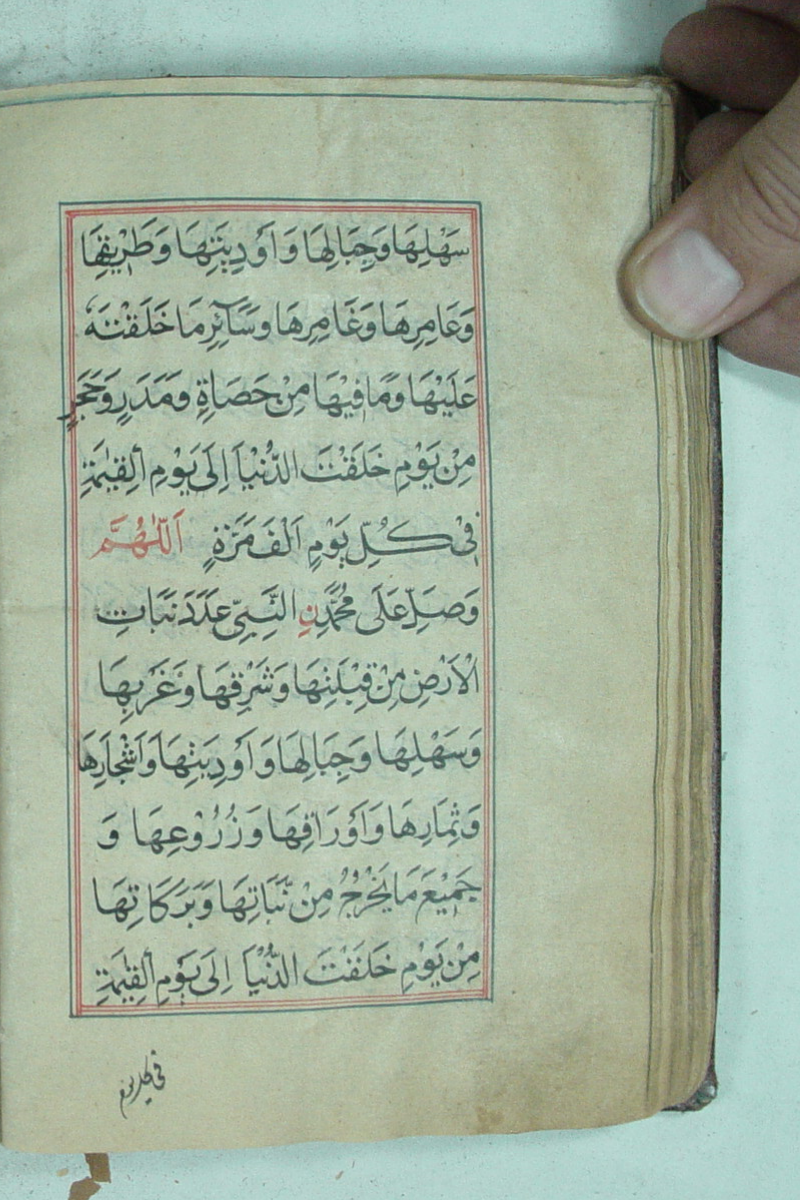 سَهْلِهَا وَجِبَالِهَا وَاَوْدِيَتِهَا وَطَرِيْقِهَا
وَعَامِرِهَا وَغَامِرِهَا وَسَآئِرِ مَا خَلَقْتَهٗ
عَلَيْهَا وَمَا فِيْهَا مِنْ حَصَاةٍ وَمَدَرٍ وَحَجَرٍ
مِنْ يَوْمِ خَلَقْتَ الدُّنْيَا اِلٰى يَوْمِ الْقِيٰمَةِ
فِىْ كُلِّ يَوْمٍ اَلْفَ مَرَّةٍ اَللّٰهُمَّ
وَصَلِّ عَلٰى مُحَمَّدِنِ النَّبِىِّ عَدَدَ نَبَاتِ
الْاَرْضِ مِنْ قِبْلَتِهَا وَشَرْقِهَا وَغَرْبِهَا
وَسَهْلِهَا وَجِبَالِهَا وَاَوْدِيَتِهَا وَاَشْجَارِهَا
وَثِمَارِهَا وَاَوْرَاقِهَا وَزُرُوْعِهَا وَ
جَمِيْعَ مَا يَخْرُجُ مِنْ نَّبَاتِهَا وَبَرَكَاتِهَا
مِنْ يَوْمِ خَلَقْتَ الدُّنْيَا اِلٰى يَوْمِ الْقِيٰمَةِ
فى كل يوم